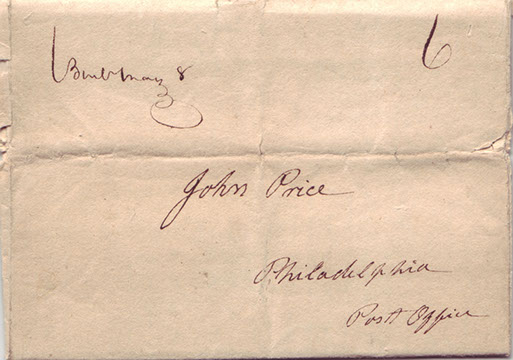 6
8
John Price
Philadelphia
Post Office